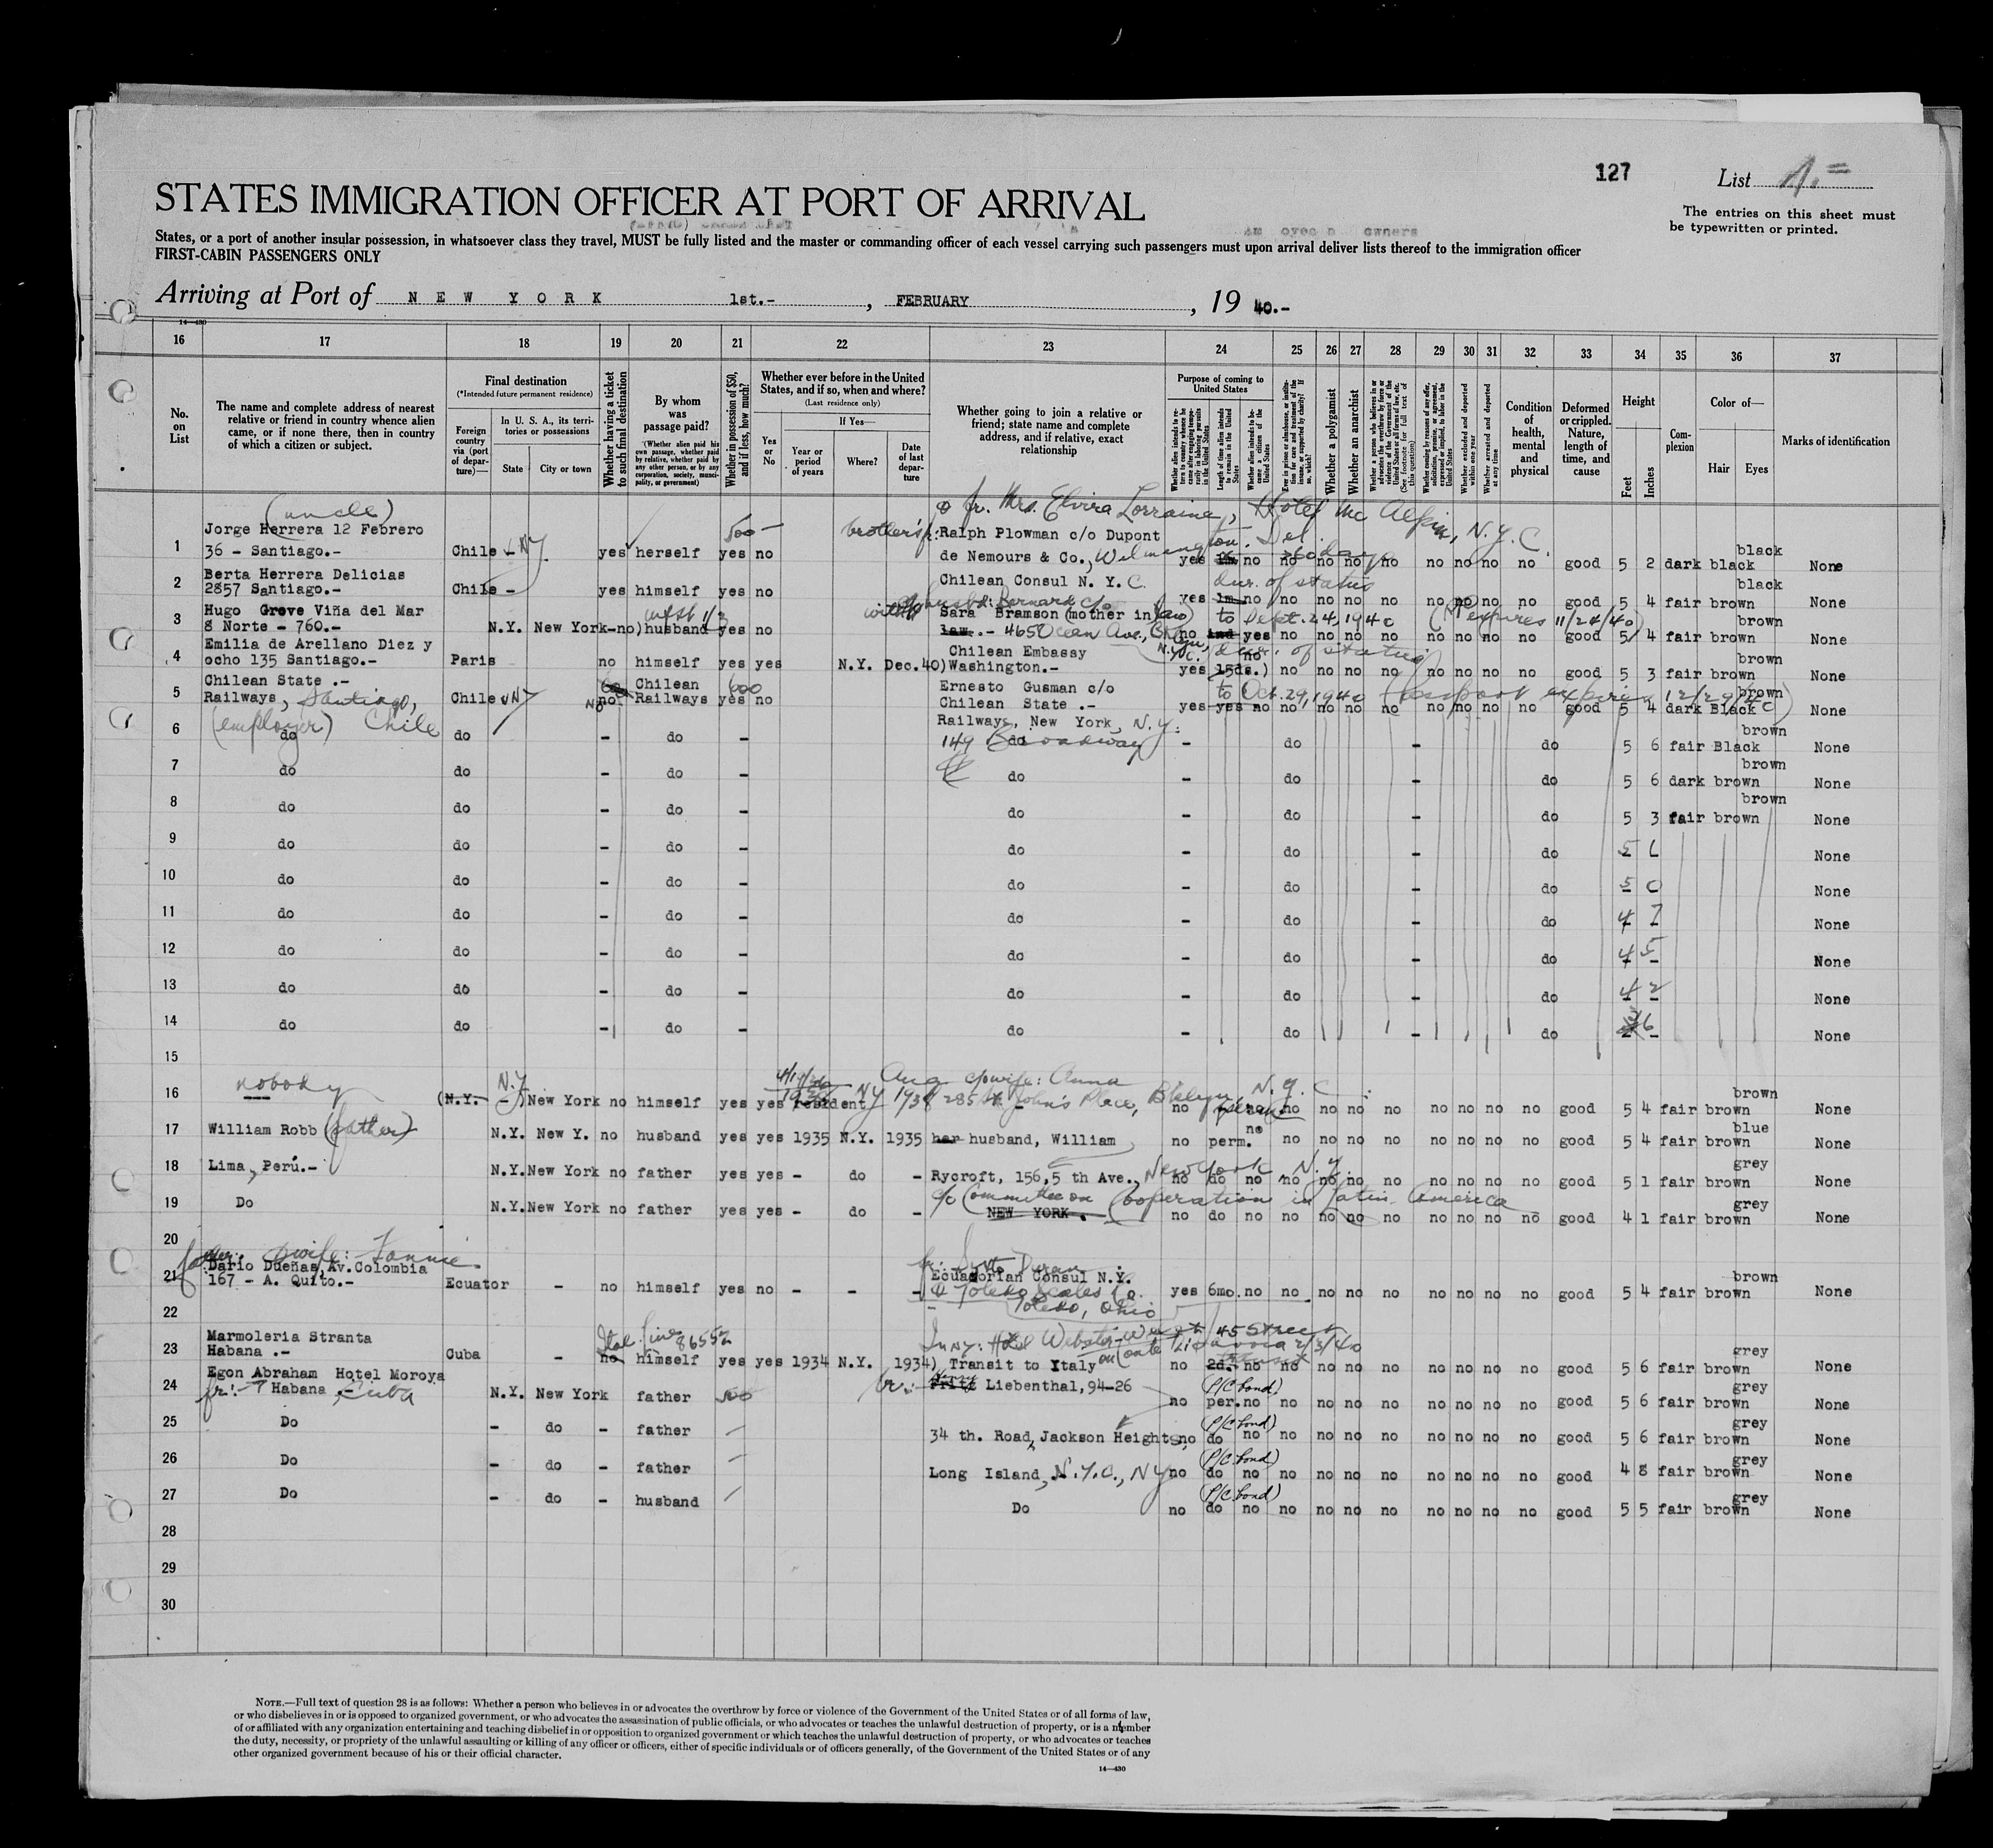 127
List 1.=
STATES IMMIGRATION OFFICER AT PORT OF ARRIVAL
The entries on this sheet must be typewritten or printed.
States, or a port of another insular possession, in whatsoever class they travel, MUST be fully listed and the master or commanding officer of each vessel carrying such passengers must upon arrival deliver lists thereof to the immigration officer
FIRST-CABIN PASSENGERS ONLY
Arriving at Port of NEW YORK 1st.- , FEBRUARY , 19 40.-
14—430
16 17 18 19 20 21 22 23 24 25 26 27 28 29 30 31 32 33 34 35 36 37
No. on List
The name and complete address of nearest relative or friend in country whence alien came, or if none there, then in country of which a citizen or subject.
Final destination
(*Intended future permanent residence)
Foreign country via (port of departure)—
In U. S. A., its territories or possessions
State City or town
Whether having a ticket to such final destination
By whom was passage paid?
(Whether alien paid his own passage, whether paid by relative, whether paid by any other person, or by any corporation, society, municipality, or government)
Whether in possession of $50, and if less, how much?
Whether ever before in the United States, and if so, when and where?
(Last residence only)
Yes or No
If Yes—
Year or period of years
Where?
Date of last departure
Whether going to join a relative or friend; state name and complete address, and if relative, exact relationship
Purpose of coming to United States
Whether alien intends to return to country whence he came after engaging temporarily in laboring pursuits in the United States
Length of time alien intends to remain in the United States
Whether alien intends to become a citizen of the United States
Ever in prison or almshouse, or institution for care and treatment of the insane, or supported by charity? If so, which?
Whether a polygamist
Whether an anarchist
Whether excluded and deported within one year
Whether arrested and deported at any time
Condition of health, mental and physical
Deformed or crippled. Nature, length of time, and cause
Height
Feet Inches
Complexion
Color of—
Hair Eyes
Marks of identification
(uncle)
fr. Mrs. Elvira Lorraine, Hotel Mc Alpin, N.Y.C.
1 Jorge Herrera 12 Febrero
36 - Santiago.- Chile NY yes herself 500- yes no brother's Ralph Plowman c/o Dupont
de Nemours & Co., Wilmington. Del. yes no 60 days no no no no no no no no good 5 2 dark black black None
2 Berta Herrera Delicias
2857 Santiago.- Chile - yes himself yes no Chilean Consul N. Y. C. dur. of status yes 1m no no no no no no no no no good 5 4 fair brown black None
3 Hugo Grove Viña del Mar
8 Norte - 760.- N.Y. New York-no) husband yes no husbd: Bernard c/o
Sara Bramson (mother in law)
law.- 4650 Ocean Ave., to Sept. 24, 1940 (PP expires 11/24/40) no ind yes no no no no no no no no good 5 4 fair brown brown None
4 Emilia de Arellano Diez y
ocho 135 Santiago.- Paris no himself yes yes N.Y. Dec.40) Chilean Embassy
Washington.- dur. of status yes 15ds.) no no no no no no no no no good 5 3 fair brown brown None
5 Chilean State .-
Railways, Santiago, Chile NY no Chilean
Railways 600 yes no Ernesto Gusman c/o
Chilean State .- to Oct. 29, 1940 (Passport expires 12/29/40) yes yes no no no no no no no no no good 5 4 dark Black brown None
(employer) Chile
6 do do - do - Railways, New York, N.Y.
149 Broadway do - do - do 5 6 fair Black brown None
7 do do - do - do - do - do 5 6 dark brown brown None
8 do do - do - do - do - do 5 3 fair brown brown None
9 do do - do - do - do - do 5 6 None
10 do do - do - do - do - do 5 0 None
11 do do - do - do - do - do 4 7 None
12 do do - do - do - do - do 4 5 None
13 do do - do - do - do - do 4 2 None
14 do do - do - do - do - do 3 6 None
15
16 nobody (N.Y. - N.Y. New York no himself yes yes resident NY 1938 wife: Anna
285 St. John's Place, Bklyn, N.Y.C. no no no no no no no no no no good 5 4 fair brown brown None
17 William Robb (father) N.Y. New Y. no husband yes yes 1935 N.Y. 1935 her husband, William no perm. no no no no no no no no no good 5 4 fair brown blue None
18 Lima, Perú.- N.Y. New York no father yes yes - do - Rycroft, 156,5 th Ave., New York, N.Y. no do no no no no no no no no no good 5 1 fair brown grey None
c/o Committee on Cooperation in Latin America
19 Do N.Y. New York no father yes yes - do - NEW YORK. no do no no no no no no no no no good 4 1 fair brown grey None
20
wife: Fannie
21 Dario Dueñas, Av. Colombia
167 - A. Quito.- Ecuador - no himself yes no - - - Ecuadorian Consul N.Y.
Toledo Scales Co.
Toledo, Ohio yes 6mo. no no no no no no no no no good 5 4 fair brown brown None
22
23 Marmoleria Stranta
Habana .- Cuba - Ital. line 86552 no himself yes yes 1934 N.Y. 1934) In NY: Hotel Webster-West 45 Street
Transit to Italy on Conte di Savoia 2/3/40 no 2d. no no no no no no no no no good 5 6 fair brown grey None
24 Egon Abraham Hotel Moroya
fr: Habana, Cuba N.Y. New York father 500 Fritz Liebenthal, 94-26 (P/C bond) no per. no no no no no no no no no good 5 6 fair brown grey None
25 Do - do - father 34 th. Road, Jackson Heights, (P/C bond) no do no no no no no no no no no good 5 6 fair brown grey None
26 Do - do - father Long Island, N.Y.C., NY (P/C bond) no do no no no no no no no no no good 4 8 fair brown grey None
27 Do - do - husband Do (P/C bond) no do no no no no no no no no no good 5 5 fair brown grey None
28
29
30
NOTE.—Full text of question 28 is as follows: Whether a person who believes in or advocates the overthrow by force or violence of the Government of the United States or of all forms of law,
or who disbelieves in or is opposed to organized government, or who advocates the assassination of public officials, or who advocates or teaches the unlawful destruction of property, or is a member
of or affiliated with any organization entertaining and teaching disbelief in or opposition to organized government or which teaches the unlawful destruction of property, or who advocates or teaches
the duty, necessity, or propriety of the unlawful assaulting or killing of any officer or officers, either of specific individuals or of officers generally, of the Government of the United States or of any
other organized government because of his or their official character.
14—430